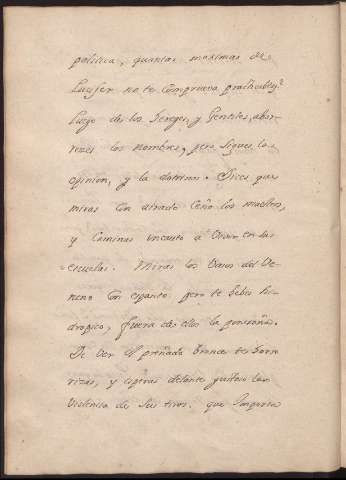 politica, quantas maximas de
Lucifer no te comprueva practicables?
Luego de los hereges, y Gentiles, abor-
reces los nombres, pero sigues la
opinion, y la doctrina. Dices que
miras con ayrado ceño los maestros,
y caminas incauto a vivir en las
escuelas. Miras los vasos del Ve-
neno con espanto pero te bebes hi-
dropico, fuera de ellos la ponzoña.
De ver el preñado bronce te horro-
rizas, y esperas delante gustoso la
violencia de sus tiros. que